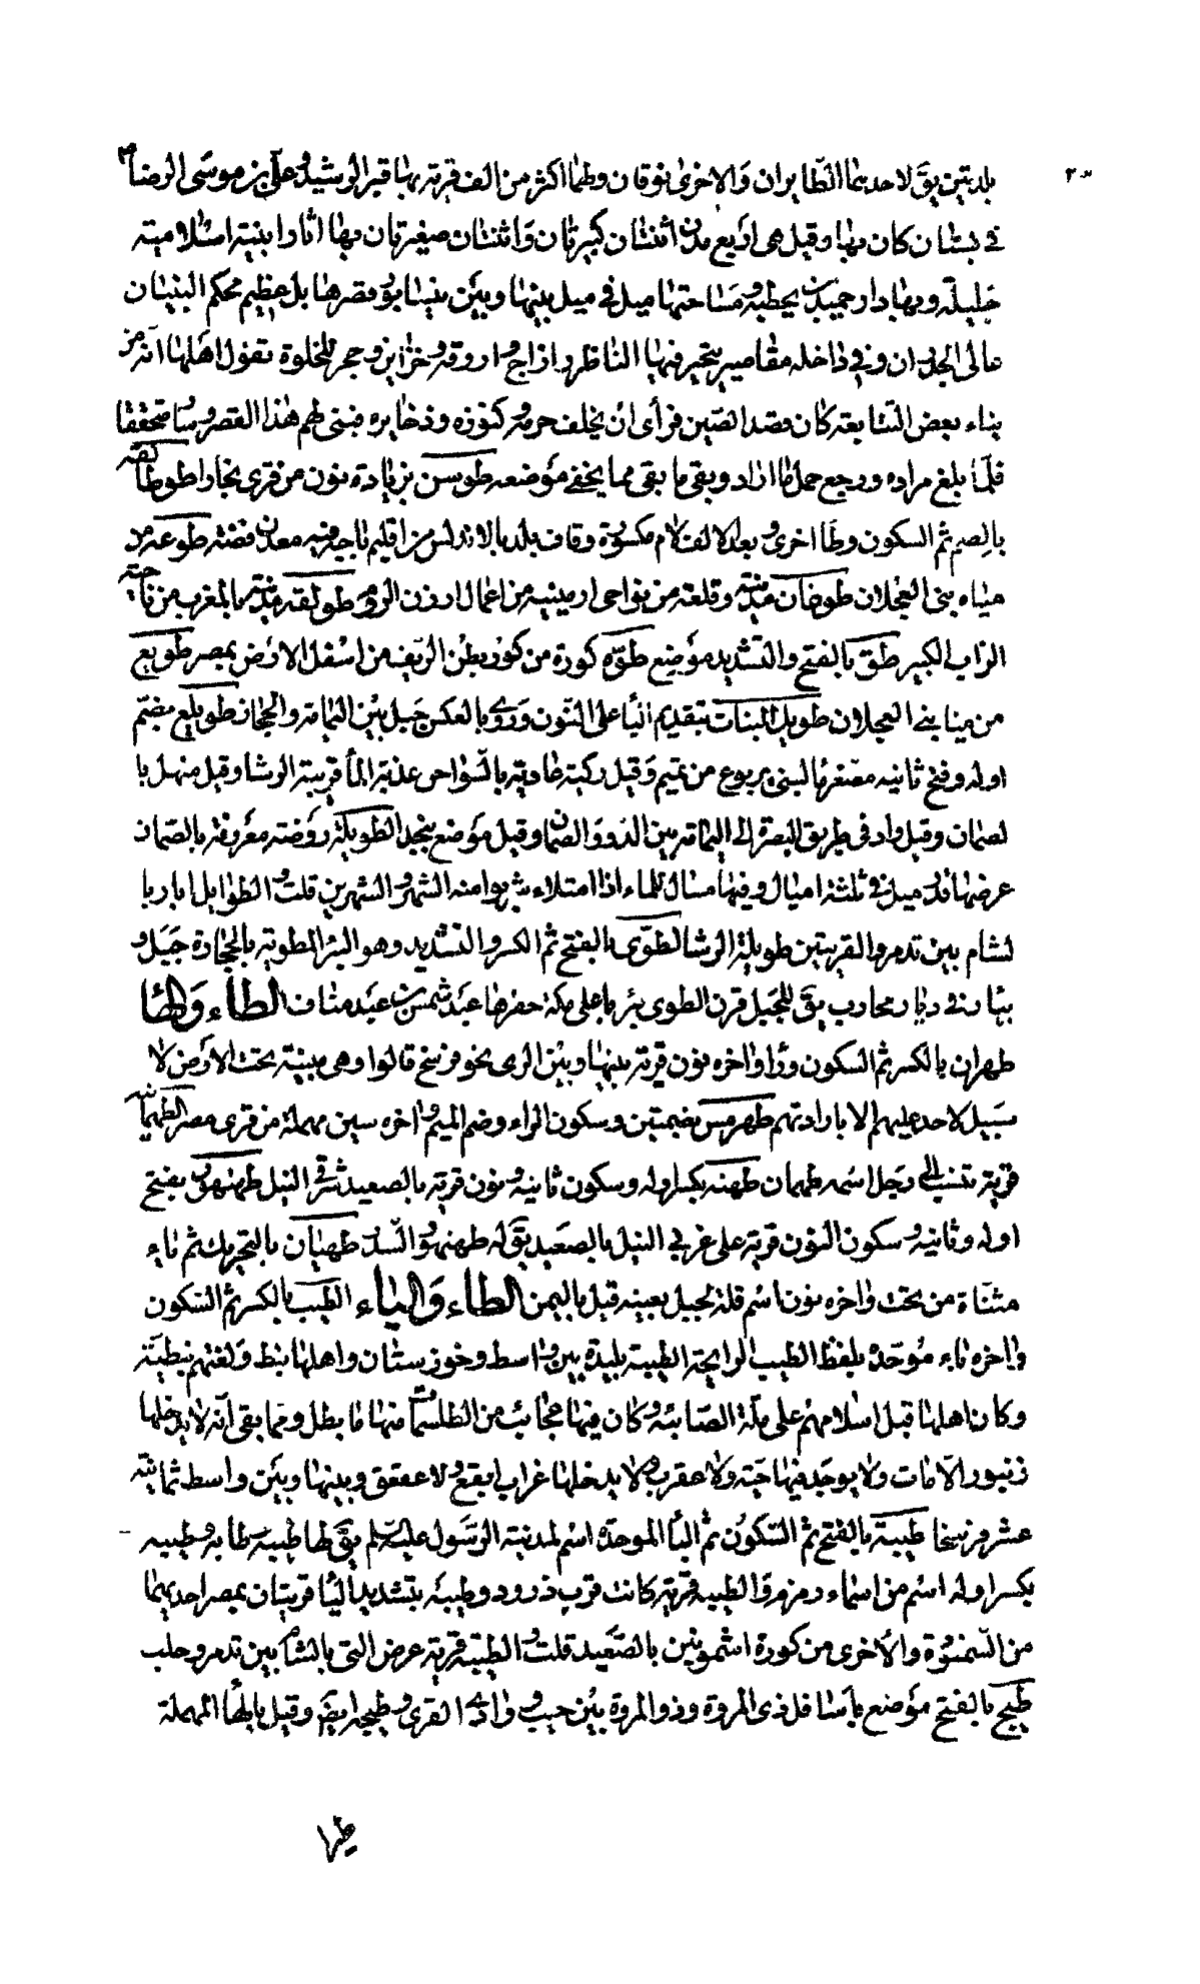 بلدتين يق لاحديهما الطابران والاخرى نوقان ولهما اكثر من الف قرية بها قبر الرشيد وعلى بن موسى الرضا
فى بستان كان بها وقيل هى اربع مدن اثنتان كبيرتان واثنتان صغيرتان بها اثار ابنية اسلامية
جليلة وبها دار حميد بن قحطبة ومساحتها ميل فى ميل بينها وبين نيسابور قصرها بل عظيم محكم البنيان
عالى الجدران وفى داخله مقاصير يتحير فيها الناظر وازاج واروقة وخزاين وحجر للخلوة تقول اهلها انه من
بناء بعض التبابعة كان قصد الصين فرأى ان يخلف حرمه وكنوزه وذخايره فبنى لهم هذا القصر وسا متخففا
فلما بلغ مراده ورجع حمل ما اراد وبقى ما بقى مما يخفى موضعه طوسن بزيادة نون من قرى بخارا طوطالقة
بالضم ثم السكون وطا اخرى وبعد الالف لام مكسورة وقاف بلد بالاندلس من اقليم باجة فيه معدن فضة طوعة من
مياه بنى العجلان طوغان مدينة وقلعة من نواحى ارمينيه من اعمال ارزن الروم طولقه مدينة بالمغرب من ناحية
الزاب الكبير طوق بالفتح والتشديد موضع طوه كورة من كور بطن الريف من اسفل الارض بمصر طويع
من مياه بنى العجلان طويل البنات بتقديم البا على النون وروى بالعكس جبل بين اليمامة والحجاز طويلع بضم
اوله وفتح ثانيه مصغر ما لبنى يربوع من تميم وقيل ركية عادية بالشواجن عذبة الما قريبة الرشا وقيل منهل با
لصمان وقيل واد فى طريق البصرة الى اليمامة بين الدو والصمان وقيل موضع بنجد الطويلة روضة معروفة بالصمان
عرضها قدر ميل فى ثلثة اميال وفيها مساك للماء اذا امتلاء شربوا منه الشهر والشهرين قلت والطوايل ابار با
لشام بين تدمر والقريتين طويلة الرشا الطوى بالفتح ثم الكسر والتشديد وهو البئر المطوية بالحجارة جبل و
بيار فى ديار محارب يق للجبل قرن الطوى بئر باعلى مكة حفرها عبد شمس بن عبد مناف الطاء والها
طهران بالكسر ثم السكون ورا واخره نون قرية بينها وبين الرى نحو فرسخ قالوا وهى مبنية تحت الارض لا
سبيل لاحد عليهم الا بارادتهم طهرمس بضمتين وسكون الراء وضم الميم واخره سين مهملة من قرى مصر الطهمانية
قرية تنسب الى رجل اسمه طهمان طهنه بكسر اوله وسكون ثانيه ونون قرية بالصعيد شرقى النيل طهنهور بفتح
اوله وثانيه وسكون النون قرية على غربى النيل بالصعيد يق له طهنهور السدر طهيان بالتحريك ثم ياء
مثناة من تحت واخره نون اسم قلة لجبل بعينه قيل باليمن الطاء والياء الطيب بالكسر ثم السكون
واخره باء موحدة بلفظ الطيب الرايحة الطيبة بليدة بين واسط وخوزستان واهلها نبط ولغتهم نبطية
وكان اهلها قبل اسلامهم على ملة الصابئة وكان فيها عجائب من الطلسمات منها ما بطل ومما بقى انه لا يدخلها
زنبور الا مات ولا يوجد فيها حية ولا عقرب ولا يدخلها غراب ابقع ولا عقعق وبينها وبين واسط ثمانية
عشر فرسخا طيبة بالفتح ثم السكون ثم البا الموحدة اسم لمدينة الرسول عليه السلم يق لها طيبة وطابة وطيبه
بكسر اوله اسم من اسماء زمزم والطيبه قرية كانت قرب زرود وطيبة بتشديد اليا قريتان بمصر احديهما
من السمنودية والاخرى من كورة اشمونين بالصعيد قلت والطيبة قرية عرض التى بالشام بين تدمر وحلب
طيج بالفتح موضع باسافل ذى المروة وذو المروة بين خيبر ووادى القرى وطيجه ايضم وقيل بالخا المهملة
طيرا